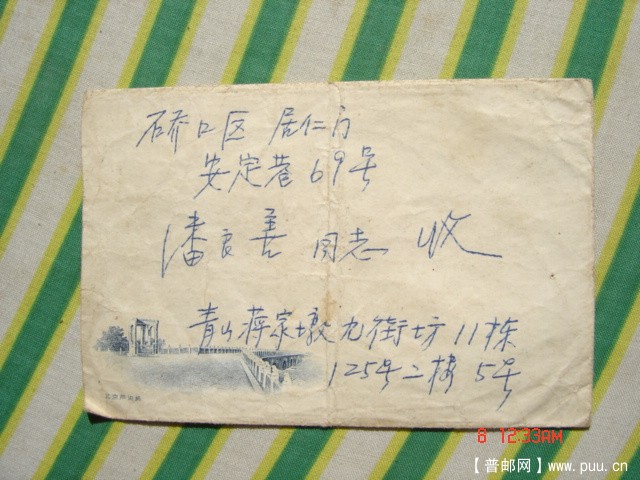 硚口区 居仁门
安定巷69号
潘良善 同志 收
青山蒋家墩九街坊11栋
125号二楼5号
8 12:33AM
【普邮网】www.puu.cn